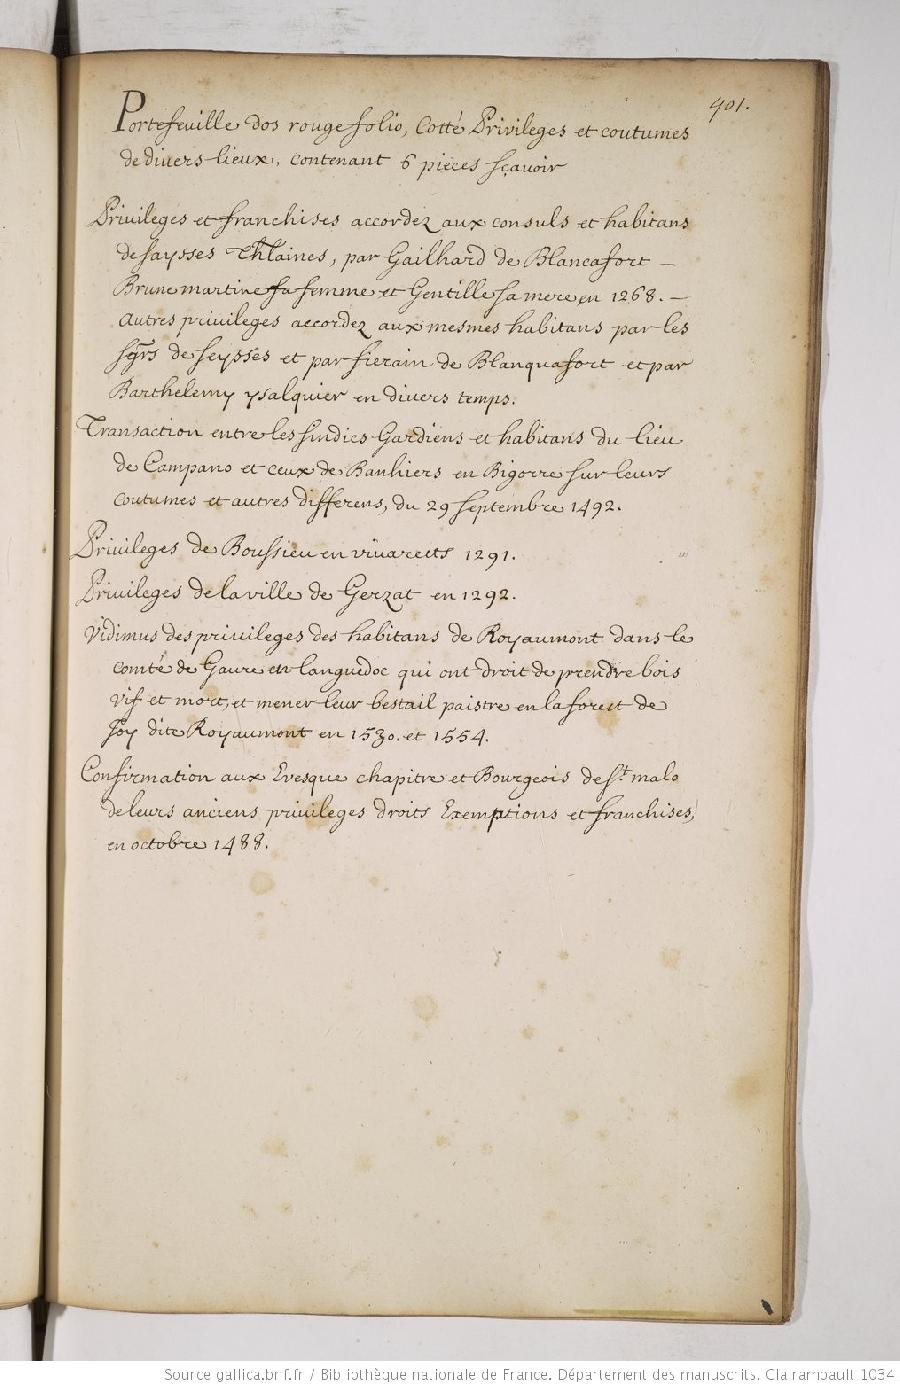 401.
Portefeuille dos rouge folio, Cotté Privileges et coutumes
de divers lieux, contenant 6 pieces sçavoir
Privileges et franchises accordez aux consuls et habitans
de saysses Thlaines, par Gailhard de Blancafort –
Brune martine sa femme et Gentille sa mere en 1268. –
autres privileges accordez aux mesmes habitans par les
sgrs de seysses et par fierain de Blanquafort et par
Barthelemy ysalquier en divers temps.
Transaction entre les sindics Gardiens et habitans du lieu
de Campans et ceux de Banhiers en Bigorre sur leurs
coutumes et autres differens, du 29 septembre 1492.
Privileges de Boussieu en vivarets 1291.
Privileges de la ville de Gerzat en 1292.
Vidimus des privileges des habitans de Royaumont dans le
comté de Gaure en languedoc qui ont droit de prendre bois
vif et mort, et mener leur bestail paistre en la forest de
Joy dite Royaumont en 1530. et 1554.
Confirmation aux Evesque chapitre et Bourgeois de st malo
de leurs anciens privileges droits Exemptions et franchises,
en octobre 1488.
Source gallica.bnf.fr / Bibliothèque nationale de France. Département des manuscrits. Clairambault 1034